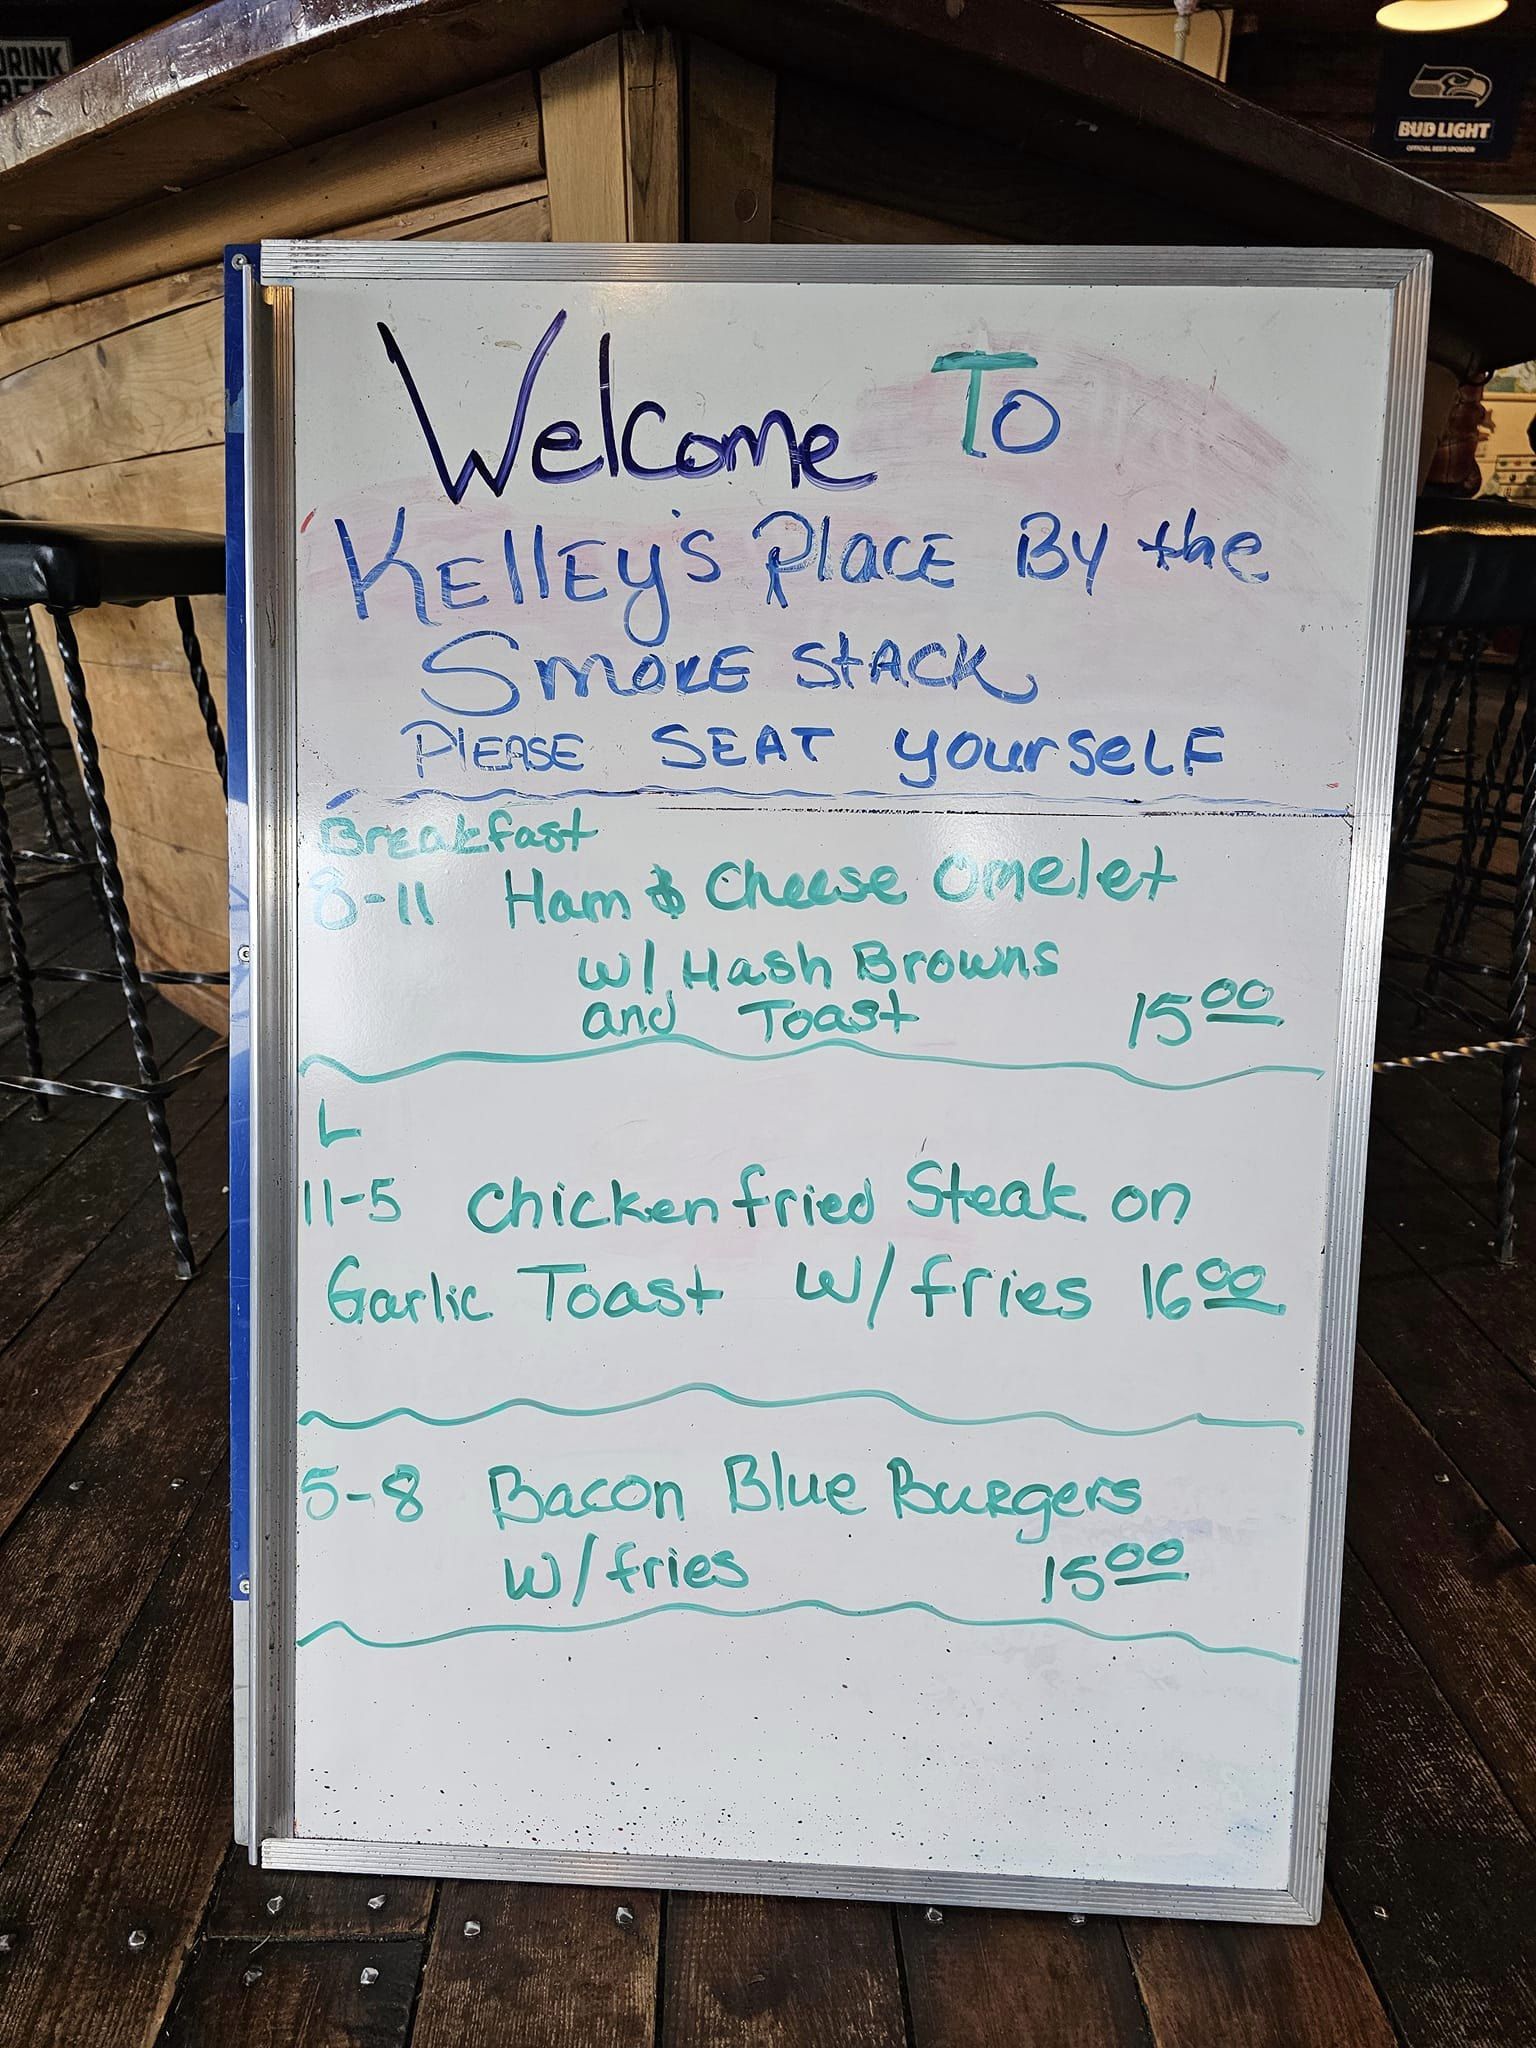 DRINK
BUD LIGHT
OFFICIAL BEER SPONSOR
Welcome To
KELLEy's PlacE By the
SmoKE StACK
PlEASE SEAT yourself
Breakfast
8-11 Ham & Cheese Omelet
w/ Hash Browns
and Toast 15 00
L
11-5 Chicken fried Steak on
Garlic Toast w/fries 16 00
5-8 Bacon Blue Burgers
w/fries 15 00